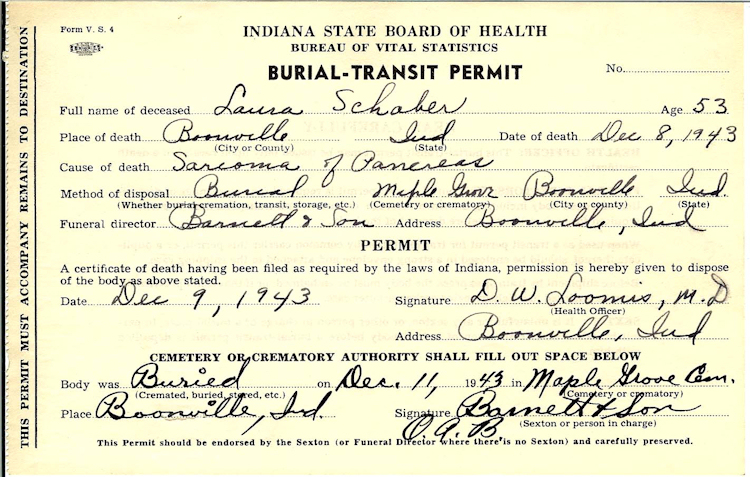 Form V. S. 4
INDIANA STATE BOARD OF HEALTH
BUREAU OF VITAL STATISTICS
BURIAL-TRANSIT PERMIT
No.
Full name of deceased Laura Schaber Age 53
Place of death Boonville Ind Date of death Dec 8, 1943
(City or County) (State)
Cause of death Sarcoma of Pancreas
Method of disposal Burial Maple Grove Boonville Ind.
(Whether burial, cremation, transit, storage, etc.) (Cemetery or crematory) (City or county) (State)
Funeral director Barnett & Son Address Boonville, Ind
PERMIT
A certificate of death having been filed as required by the laws of Indiana, permission is hereby given to dispose
of the body as above stated.
Date Dec 9, 1943 Signature D. W. Loomis, M.D
(Health Officer)
Address Boonville, Ind
CEMETERY OR CREMATORY AUTHORITY SHALL FILL OUT SPACE BELOW
Body was Buried on Dec. 11, 1943 in Maple Grove Cem.
(Cremated, buried, stored, etc.) (Cemetery or crematory)
Place Boonville, Ind. Signature Barnett & Son
O.A.B. (Sexton or person in charge)
This Permit should be endorsed by the Sexton (or Funeral Director where there is no Sexton) and carefully preserved.
THIS PERMIT MUST ACCOMPANY REMAINS TO DESTINATION